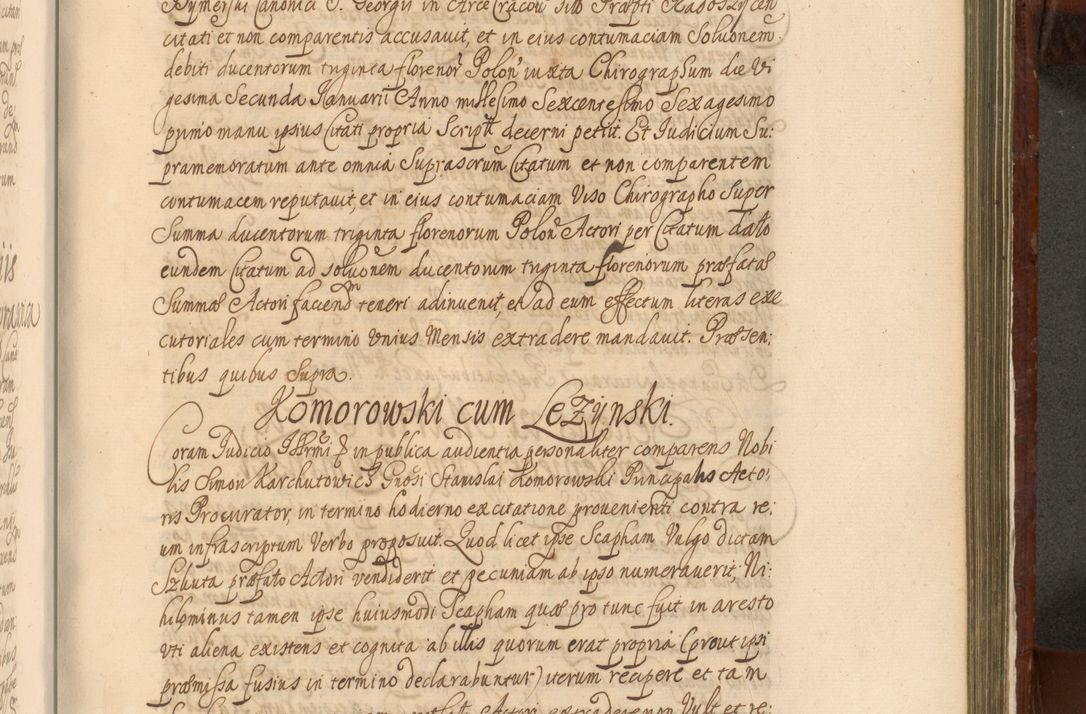 Bymersii Canonici S. Georgii in Arce Cracou sito Præpti Radoszycen
citati et non comparentis accusauit, et in eius contumaciam Soluõnem
debiti ducentorum triginta florenor Polon iuxta Chirographum die Vi
gesima Secunda Ianuarii Anno millesimo Sexcentesimo Sexagesimo
primo manu ipsius Citati propria Script decerni petiit. Et Iudicium Su:
pramemoratum ante omnia Suprascrum Citatum et non comparentem
contumacem reputauit, et in eius contumaciam Viso Chirographo Super
Summa ducentorum triginta florenorum Polon Actori per Citatum dato
eundem Citatum ad soluõnem ducentorum triginta florenorum præfatæ
Summæ Actori faciend teneri adinuenit, et ad eum effectum literas exe
cutoriales cum termino Vnius Mensis extradere mandauit. Præsen:
tibus quibus Supra.
Komorowski cum Leżynski.
Coram Iudicio Illrmi P in publica audientia personaliter comparens Nobi
lis Simon Karchutowicz Gnosi Stanislai Komorowski Principalis Acto:
ris Procurator, in termino hodierno ex citatione provenienti contra re:
um infrascriptum Verbo proposuit. Quod licet ipse Scapham Vulgo dictam
Szkuta præfato Actori vendiderit et pecuniam ab ipso numeraverit, Ni:
hilominus tamen ipse huiusmodi Scapham quæ pro tunc fuit in aresto
vti aliena existens et cognita ab illis quorum erat propria (prout ipsi
præmissa fusius in termino declarabuntur) iterum recipere et tam
Actori extradere non Vult et re: